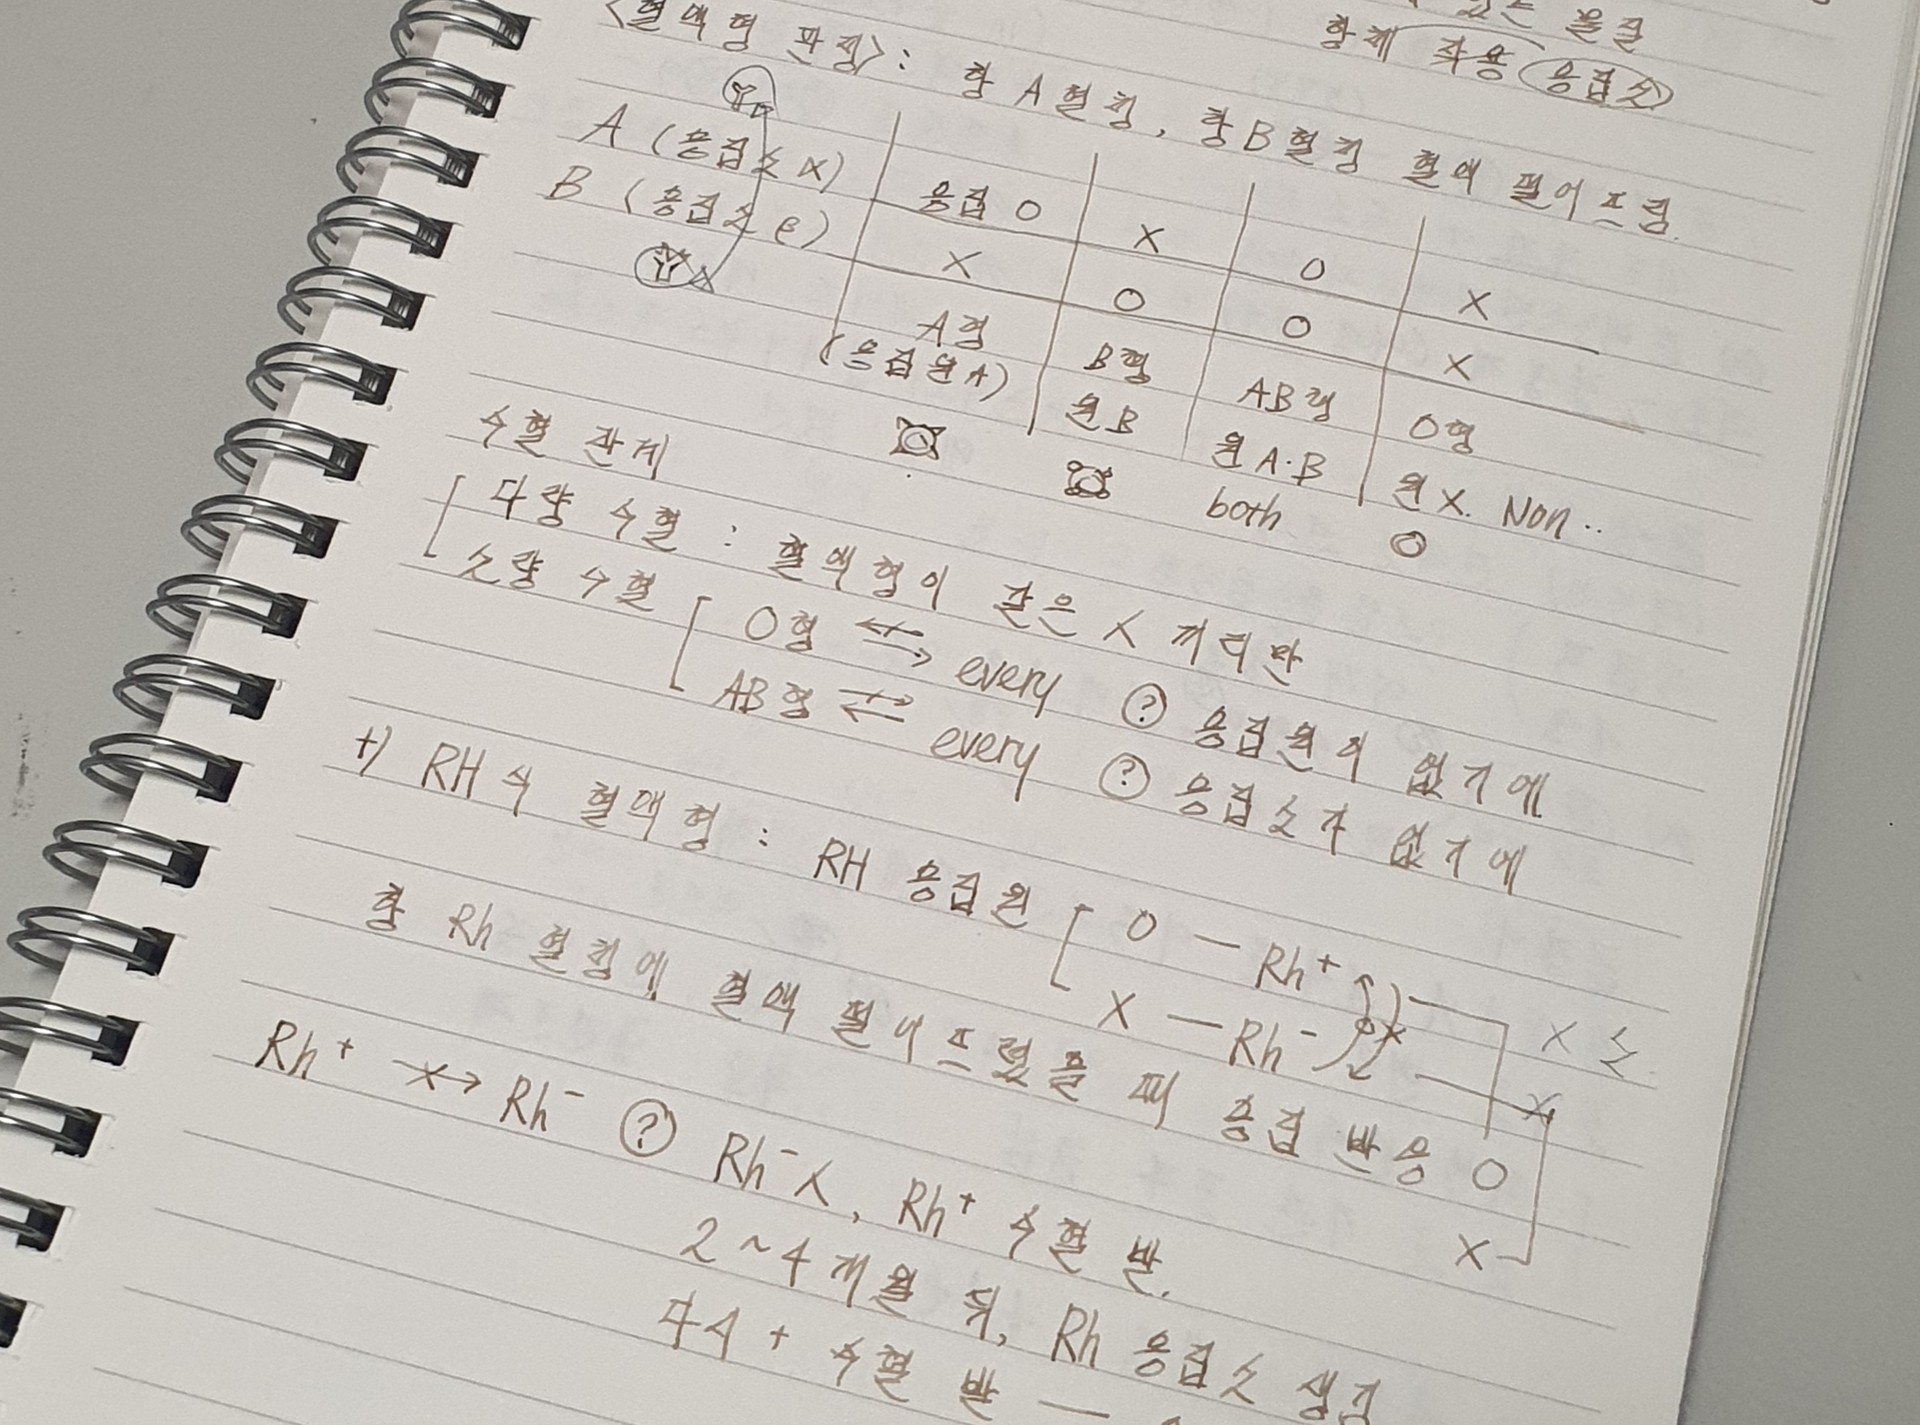 있는 물질
항체 작용 응집소
<혈액형 판정> : 항 A혈청, 항B혈청 혈액 떨어뜨림.
A (응집소 α) 응집 O X O X
B (응집소 β) X O O X
A형 B형 AB형 O형
(응집원A) 원B 원A·B 원X. Non..
both
수혈 관계
다량 수혈 : 혈액형이 같은 X 끼리만
소량 수혈 O형 every ? 응집원이 없기에
AB형 every ? 응집소가 없기에
+) RH식 혈액형 : RH 응집원 O — Rh+
X — Rh-
항 Rh 혈청에 혈액 떨어뜨렸을 때 응집 반응 O
X
Rh+ -x-> Rh- ? Rh-X, Rh+ 수혈 받.
2~4개월 뒤, Rh 응집소 생김
다시 + 수혈 받 —